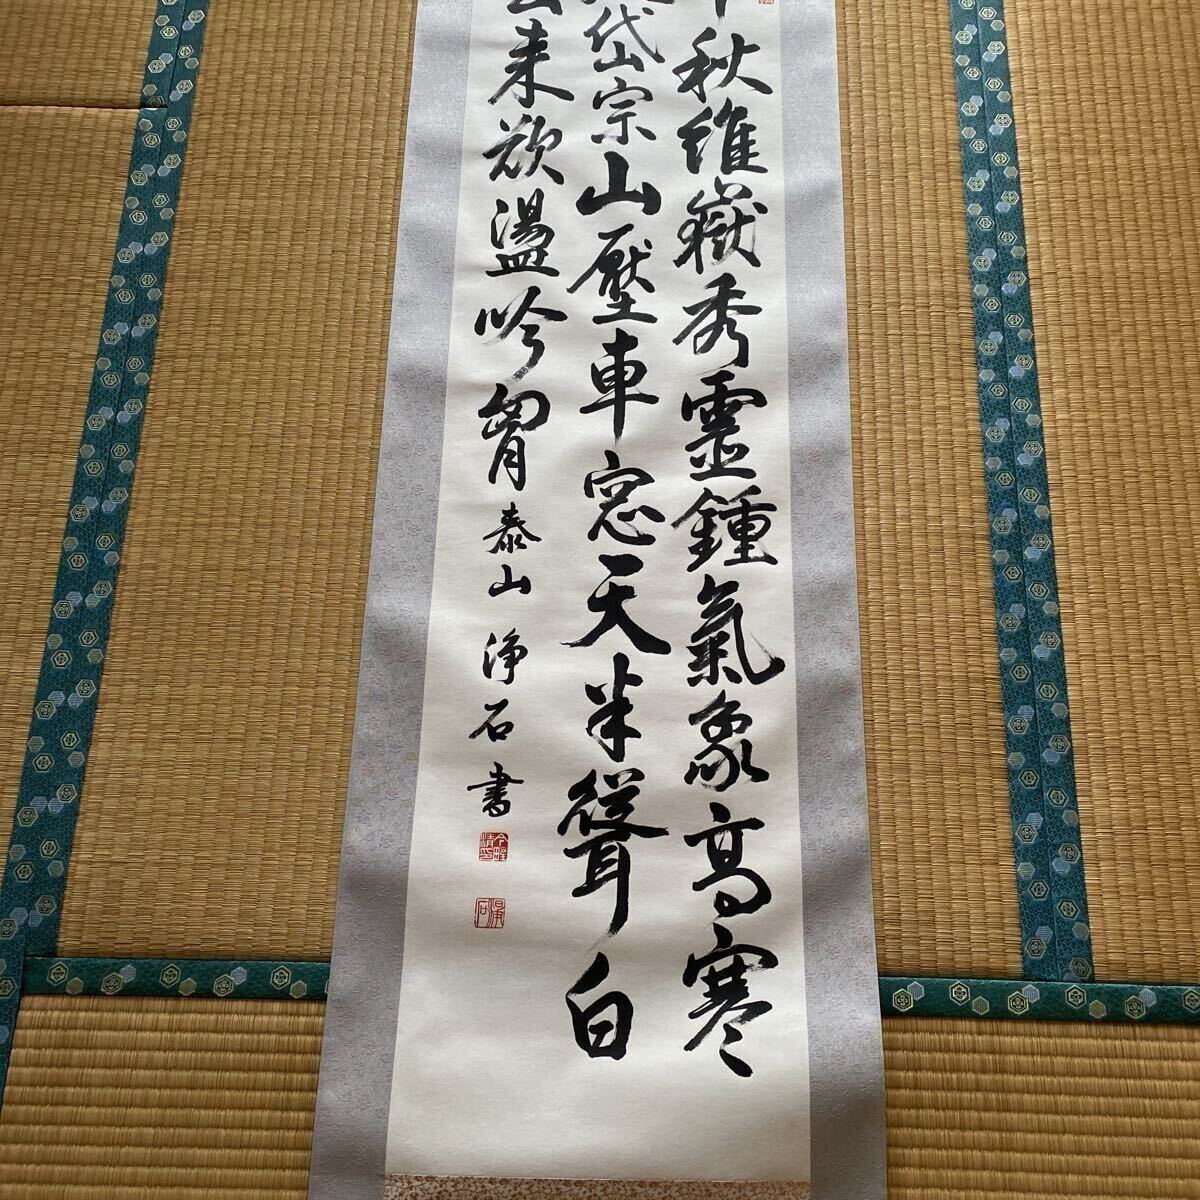 秋維嶽秀靈鍾氣象高寒
岱宗山壓車窓天半聳白
来欲盪吟胷 泰山 浄石書
浄石